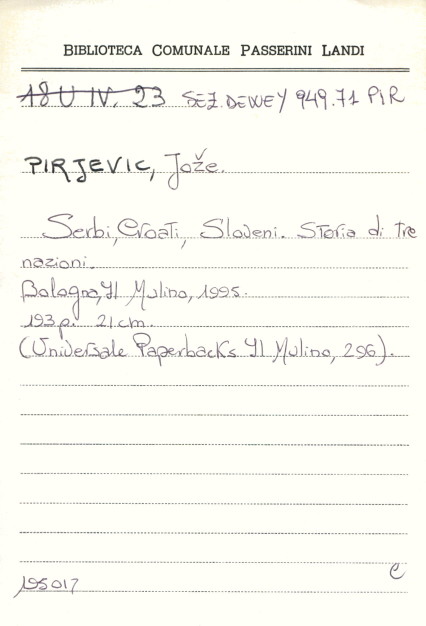 BIBLIOTECA COMUNALE PASSERINI LANDI
18 U IV. 23 SEZ. DEWEY 949.71 PIR
PIRJEVIC, Jože.
Serbi, Croati, Sloveni. Storia di tre
nazioni.
Bologna, Il Mulino, 1995.
193 p. 21 cm.
(Universale Paperbacks Il Mulino, 296).
195017
C